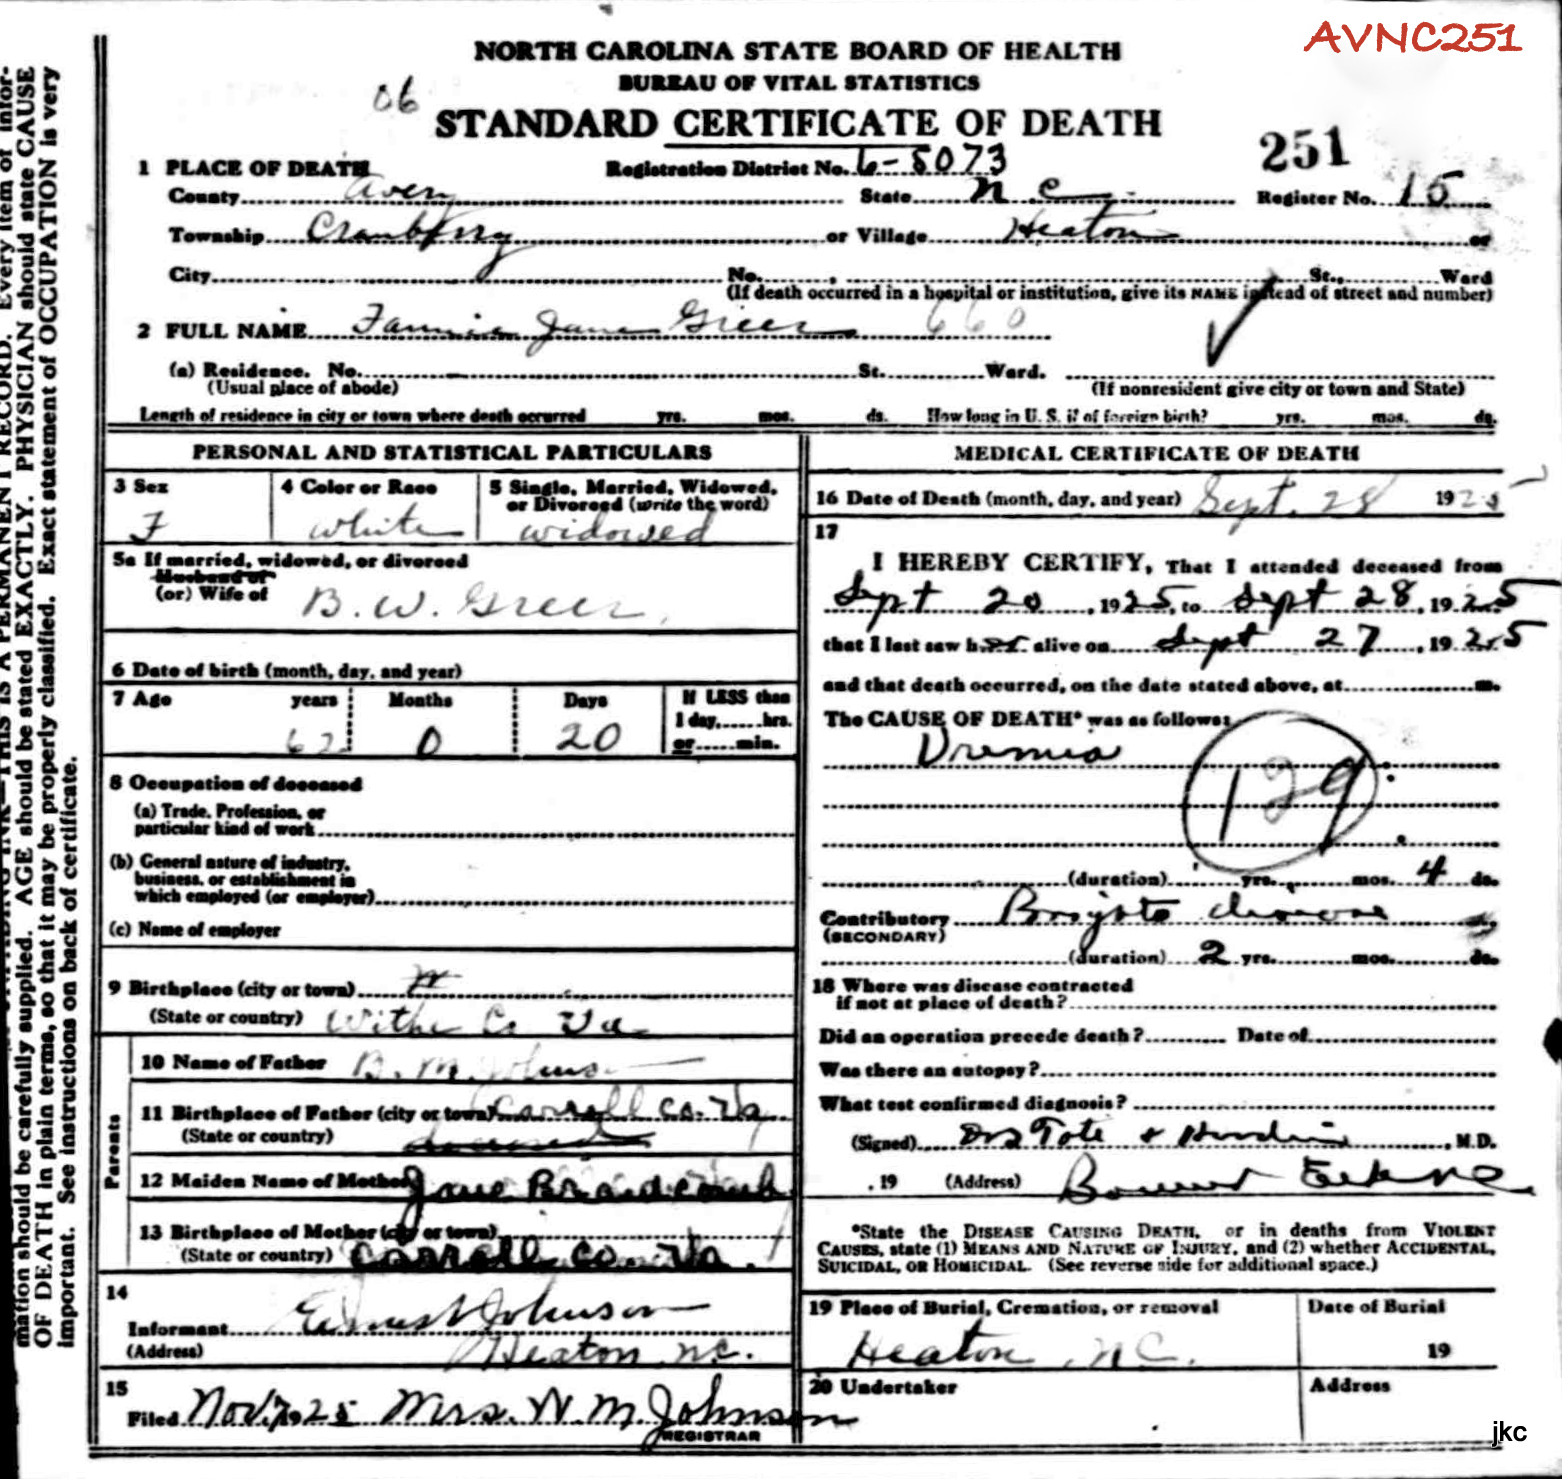 AVNC251
NORTH CAROLINA STATE BOARD OF HEALTH
BUREAU OF VITAL STATISTICS
06
STANDARD CERTIFICATE OF DEATH
251
1 PLACE OF DEATH Registration District No. 6-5073
County Avery State N.C. Register No. 15
Township Cranberry or Village Heaton or
City No. , St., Ward
(If death occurred in a hospital or institution, give its NAME instead of street and number)
2 FULL NAME Fannie Jane Greer 660
(a) Residence. No. St. Ward.
(Usual place of abode) (If nonresident give city or town and State)
Length of residence in city or town where death occurred yrs. mos. ds. How long in U. S. if of foreign birth? yrs. mos. ds.
PERSONAL AND STATISTICAL PARTICULARS
3 Sex 4 Color or Race 5 Single, Married, Widowed,
or Divorced (write the word)
F white widowed
5a If married, widowed, or divorced
Husband of
(or) Wife of B. W. Greer
6 Date of birth (month, day, and year)
7 Age years Months Days If LESS than
1 day, hrs.
62 0 20 or min.
8 Occupation of deceased
(a) Trade, Profession, or
particular kind of work
(b) General nature of industry,
business, or establishment in
which employed (or employer)
(c) Name of employer
9 Birthplace (city or town)
(State or country) Withe Co Va
Parents
10 Name of Father B. M. Johnson
11 Birthplace of Father (city or town) Carroll Co. Va
(State or country)
12 Maiden Name of Mother Jane
13 Birthplace of Mother (city or town)
(State or country) Carroll Co. Va.
14
Informant Ernest Johnson
(Address) Heaton N.C.
15
Filed Nov. 7, 1925 Mrs. W. M. Johnson
REGISTRAR
MEDICAL CERTIFICATE OF DEATH
16 Date of Death (month, day, and year) Sept. 28 1925
17
I HEREBY CERTIFY, That I attended deceased from
Sept 20, 1925, to Sept 28, 1925
that I last saw her alive on Sept 27, 1925
and that death occurred, on the date stated above, at m.
The CAUSE OF DEATH* was as follows:
Uremia
129
(duration) yrs. mos. 4 ds.
Contributory Brights disease
(SECONDARY)
(duration) 2 yrs. mos. ds.
18 Where was disease contracted
if not at place of death?
Did an operation precede death? Date of
Was there an autopsy?
What test confirmed diagnosis?
(Signed) Drs Tate & , M.D.
, 19 (Address)
*State the DISEASE CAUSING DEATH, or in deaths from VIOLENT
CAUSES, state (1) MEANS AND NATURE OF INJURY, and (2) whether ACCIDENTAL,
SUICIDAL, OR HOMICIDAL. (See reverse side for additional space.)
19 Place of Burial, Cremation, or removal Date of Burial
Heaton, N.C. 19
20 Undertaker Address
jkc
THIS IS A PERMANENT RECORD. Every item of infor-
mation should be carefully supplied. AGE should be stated EXACTLY. PHYSICIAN should state CAUSE
OF DEATH in plain terms, so that it may be properly classified. Exact statement of OCCUPATION is very
important. See instructions on back of certificate.